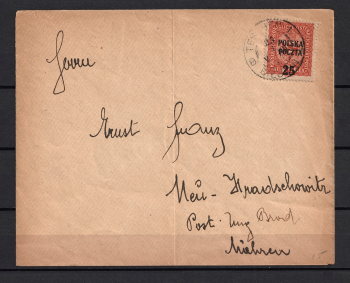 POLSKA
POCZTA
25
Herrn
Ernst Franz
Neu-Hradschowitz
Post. Ung Brod
Mähren